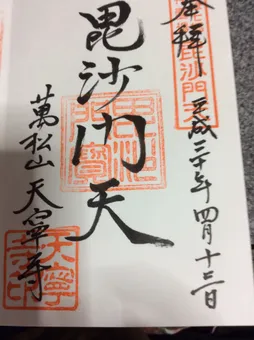 奉拝
平成三十年四月十三日
毘沙門天
萬松山天寧寺
天寧寺印